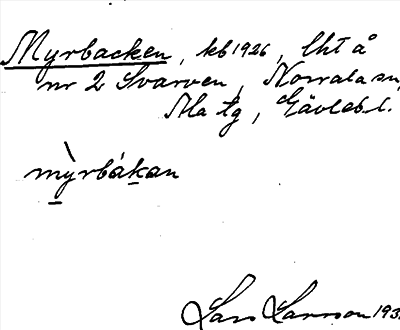 Myrbacken, kb 1926, lht å
nr 2 Svarven, Norrala sn,
Ala tg, Gävleb.l.
mỳrbákan
Lars Larsson 193